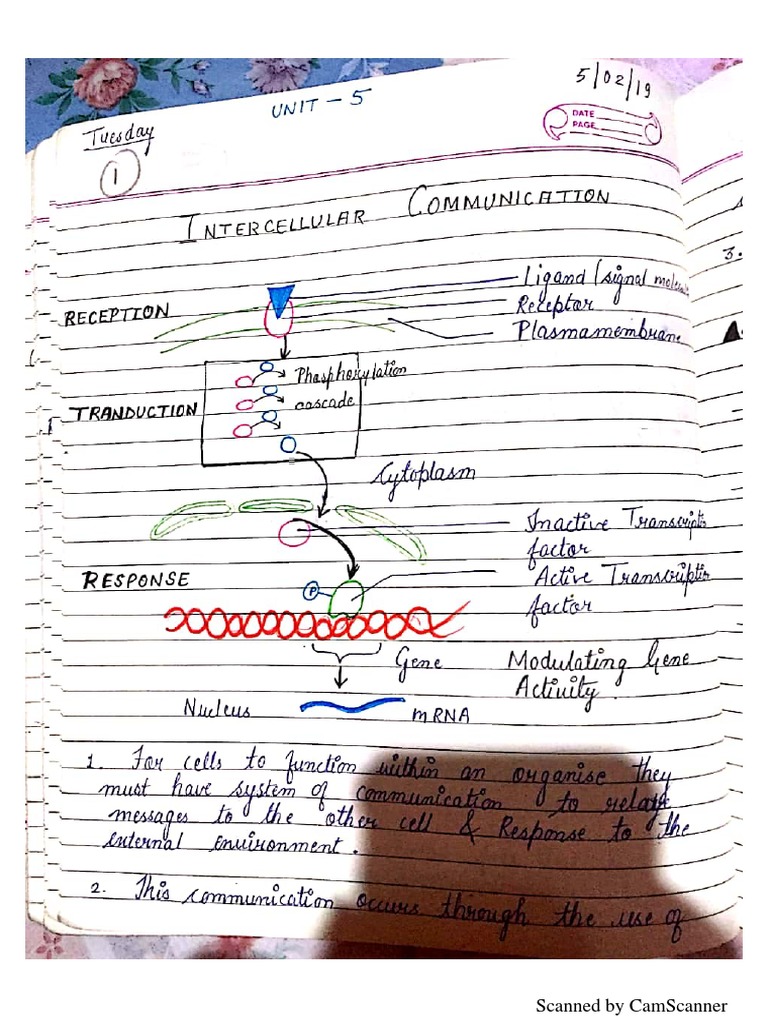 5/02/19
UNIT - 5
DATE
PAGE
Tuesday
1
INTERCELLULAR COMMUNICATION
RECEPTION
Ligand (signal molecule
Receptor
Plasmamembrane
Phosphorylation
cascade
TRANDUCTION
Cytoplasm
Inactive Transcriptio
factor
RESPONSE
Active Transcriptio
factor
P
Gene
Modulating Gene
Activity.
Nucleus
mRNA
3.
1. For cells to function within an organise they
must have system of communication to relate
messages to the other cell & Response to the
external environment.
2. This communication occurs through the use of
Scanned by CamScanner